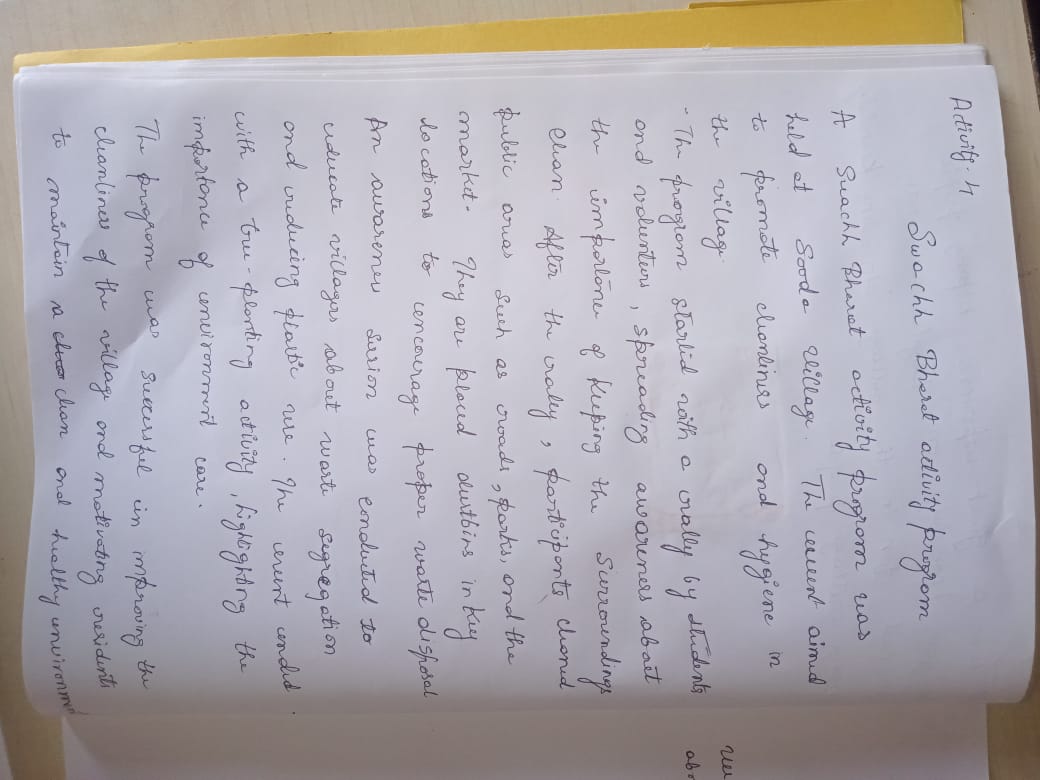 Activity-4
Swachh Bharat activity program
A Swachh Bharat activity program was
held at Sooda Village. The event aimed
to promote cleanliness and hygiene in
the village.
The program started with a rally by students
and volunteers, spreading awareness about
the importance of keeping the surroundings
clean. After the rally, participants cleaned
public areas such as roads, parks, and the
market. They are placed dustbins in key
locations to encourage proper waste disposal
An awareness session was conducted to
educate villagers about waste segregation
and reducing plastic use. The event ended
with a tree-planting activity, highlighting the
importance of environment care.
The program was successful in improving the
cleanliness of the village and motivating residents
to maintain a clean and healthy environment